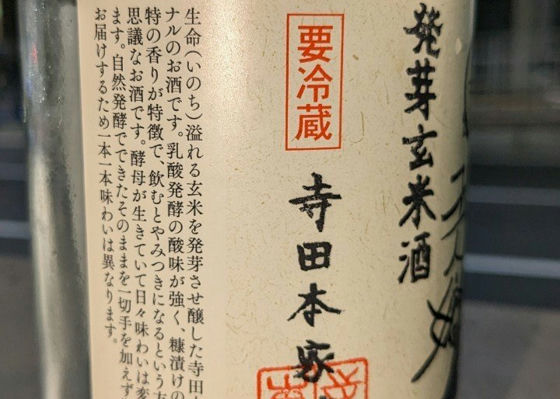 発芽玄米酒
要冷蔵
寺田本家
生命(いのち)溢れる玄米を発芽させ醸した寺田
ナルのお酒です。乳酸発酵の酸味が強く、糠漬けの
特の香りが特徴で、飲むとやみつきになるという方
思議なお酒です。酵母が生きていて日々味わいは変
ます。自然発酵でできたそのままを一切手を加えず
お届けするため一本一本味わいは異なります。